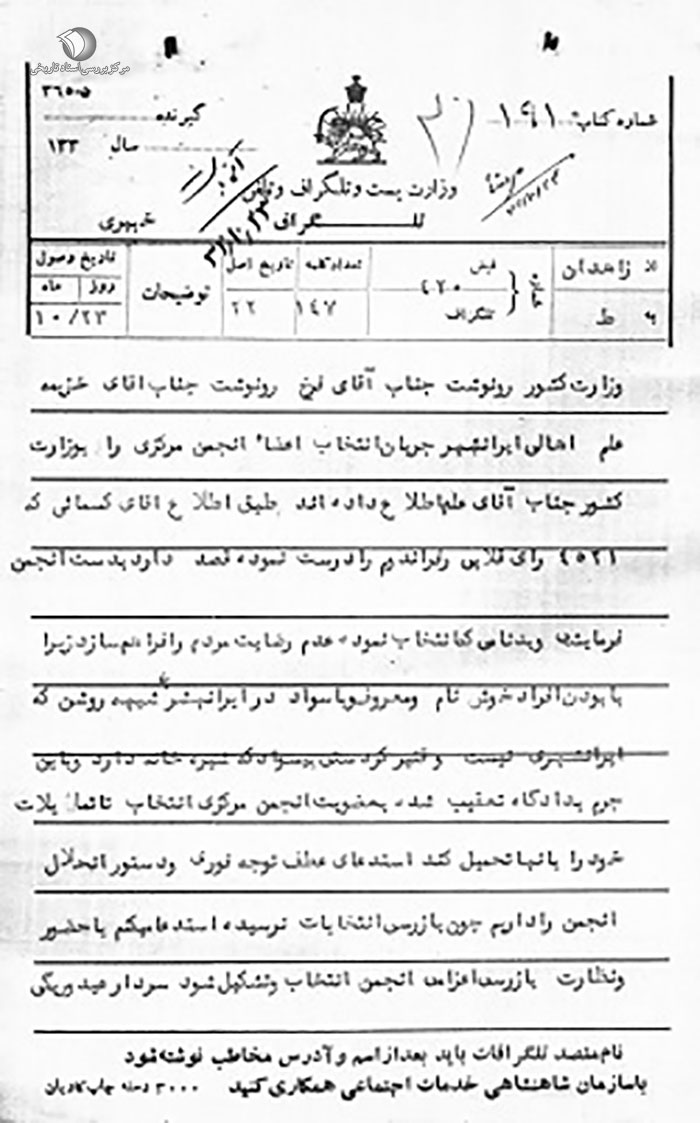 مرکز بررسی اسناد تاریخی
شماره کتاب: ۱۹۱
۳۶۵۰۵
گیرنده
سال ۱۳۳
وزارت پست و تلگراف و تلفن
تلگراف شهری
زاهدان
ط
قبض ۴۲۰
تلگراف
تعداد کلمه ۱۴۷
تاریخ اصل ۲۲
توضیحات
تاریخ وصول
روز ماه
۱۰/۲۳
وزارت کشور رونوشت جناب آقای فرخ رونوشت جناب اقای خزیمه
علم اهالی ایرانشهر جریان انتخاب اعضاء انجمن مرکزی را بوزارت
کشور جناب آقای علم اطلاع داده اند طبق اطلاع اقای کسمائی که
رای قلابی رفراندم را درست نموده قصد دارد بدست انجمن
فرمایشی وبدنامی که انتخاب نموده عدم رضایت مردم را فراهم سازد زیرا
با بودن افراد خوش نام ومعروف وباسواد در ایرانشهر روشن که
ایرانشهری نیست و بیسواد که شیره خانه دارد وباین
جرم بدادگاه تعقیب شده بعضویت انجمن مرکزی انتخاب
خود را بانها تحمیل کند استدعای عطف توجه فوری ودستور انحلال
انجمن را داریم چون بازرس انتخابات نرسیده استدعا میکنم باحضور
ونظارت بازرس اعزامی انجمن انتخاب وتشکیل شود سردار عیدوریگی
نام مقصد تلگرافات باید بعد از اسم و آدرس مخاطب نوشته شود
با سازمان شاهنشاهی خدمات اجتماعی همکاری کنید ۳۰۰۰ چاپ